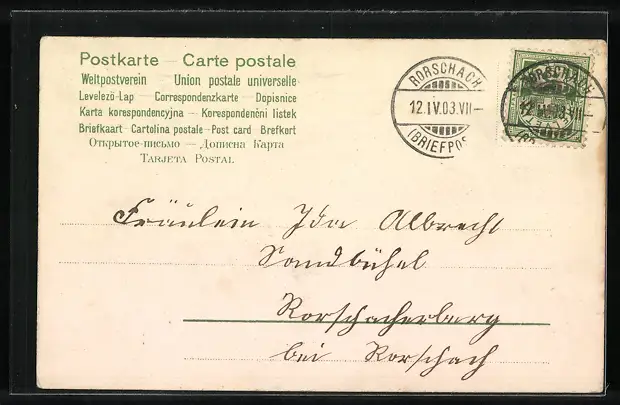 Postkarte — Carte postale
Weltpostverein — Union postale universelle
Levelező-Lap — Correspondenzkarte — Dopisnice
Karta korespondencyjna — Korespondenční listek
Briefkaart - Cartolina postale - Post card Brefkort
Открытое-письмо — Дописна Карта
Tarjeta Postal
RORSCHACH
12.IV.03.VII—
(BRIEFPOS
RORSCHACH
12.IV.03.VII—
Fräulein Ida Albrecht
Sandbühel
Rorschacherberg
bei Rorschach